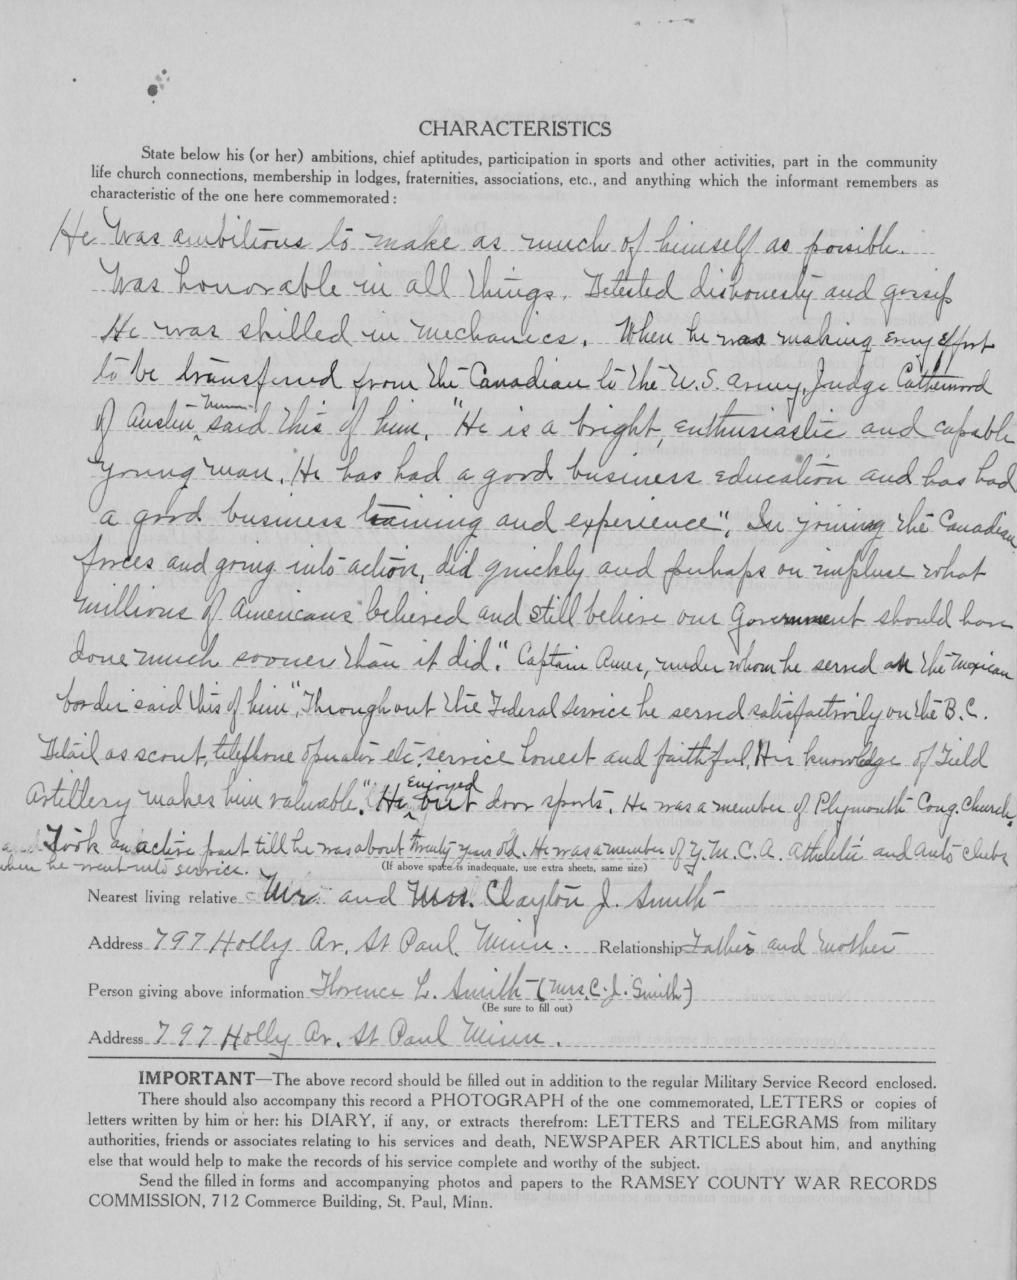 CHARACTERISTICS
State below his (or her) ambitions, chief aptitudes, participation in sports and other activities, part in the community
life church connections, membership in lodges, fraternities, associations, etc., and anything which the informant remembers as
characteristic of the one here commemorated:
He was ambitious to make as much of himself as possible.
Was honorable in all things. Detested dishonesty and gossip
He was skilled in mechanics. When he was making every effort
to be transferred from the Canadian to the U.S. Army, Judge Catherwood
of Austin Minn. said this of him, "He is a bright, enthusiastic and capable
young man. He has had a good business education and has had
a good business training and experience". In joining the Canadian
forces and going into action, did quickly and perhaps on impluse what
millions of Americans believed and still believe our Government should have
done much sooner than it did." Captain Ames, under whom he served on the Mexican
border said this of him, "Throughout the Federal Service he served satisfactorily on the B.C.
Detail as scout, telephone operator etc, service honest and faithful, His knowledge of Field
Artillery makes him valuable." He Enjoyed out door sports. He was a member of Plymouth Cong. Church,
and Took an active part till he was about twenty years old. He was a member of Y.M.C.A. Athletic and Auto Clubs
when he went into service.
(If above space is inadequate, use extra sheets, same size)
Nearest living relative Mr. and Mrs. Clayton J. Smith
Address 797 Holly Av. St Paul. Minn. Relationship Father and Mother
Person giving above information Florence L. Smith (Mrs. C. J. Smith)
(Be sure to fill out)
Address 797 Holly Av. St Paul Minn.
IMPORTANT—The above record should be filled out in addition to the regular Military Service Record enclosed.
There should also accompany this record a PHOTOGRAPH of the one commemorated, LETTERS or copies of
letters written by him or her: his DIARY, if any, or extracts therefrom: LETTERS and TELEGRAMS from military
authorities, friends or associates relating to his services and death, NEWSPAPER ARTICLES about him, and anything
else that would help to make the records of his service complete and worthy of the subject.
Send the filled in forms and accompanying photos and papers to the RAMSEY COUNTY WAR RECORDS
COMMISSION, 712 Commerce Building, St. Paul, Minn.